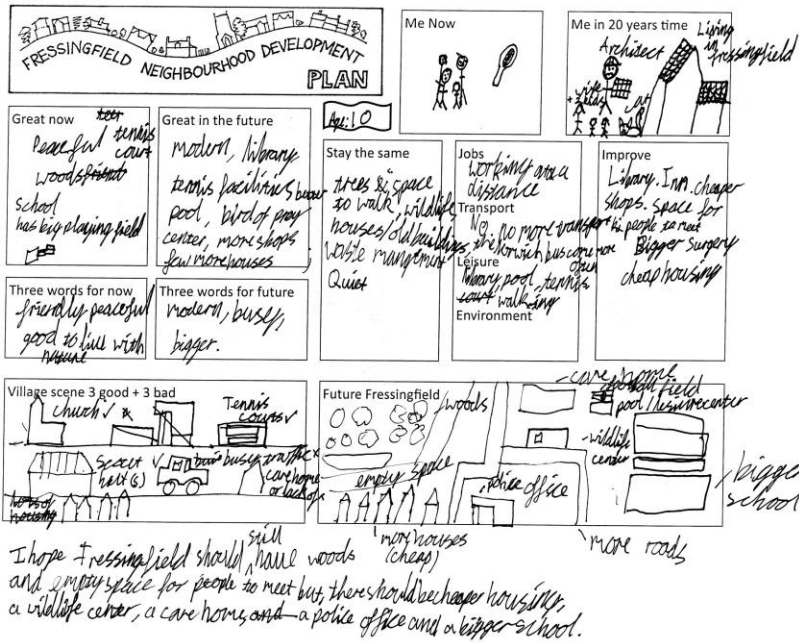 FRESSINGFIELD NEIGHBOURHOOD DEVELOPMENT
PLAN
Me Now
Me in 20 years time
Architect
Living
in
fressingfield
wife
+ kids
cat
Age: 10
Great now
Peaceful tennis
court
woods
school
has big playing field
Great in the future
modern, library
tennis facilities better
pool, bird of pray
center, more shops
few more houses
Stay the same
trees & space
to walk, wildlife
houses/old buildings,
waste mangement
Quiet
Jobs
working at a
distance
Transport
No, no more transport
the Norwich bus come more
often
Leisure
library, pool, tennis
walking
Environment
Improve
Library. Inn. cheaper
shops. space for
people to meet
Bigger surgery
cheap housing
Three words for now
friendly peaceful
good to live with
nature
Three words for future
modern, busey,
bigger.
Village scene 3 good + 3 bad
church ✓
Tennis
courts ✓
Scout ✓
hut (s)
busy traffic x
care home
or lack of x
Future Fressingfield
woods
empty space
care home
field
pool / lesurecenter
wildlife
center
police office
bigger
school
more houses
(cheap)
more roads
I hope Fressingfield should still have woods
and empty space for people to meet but, there should be cheaper housing,
a wildlife center, a care home a police office and a bigger school.